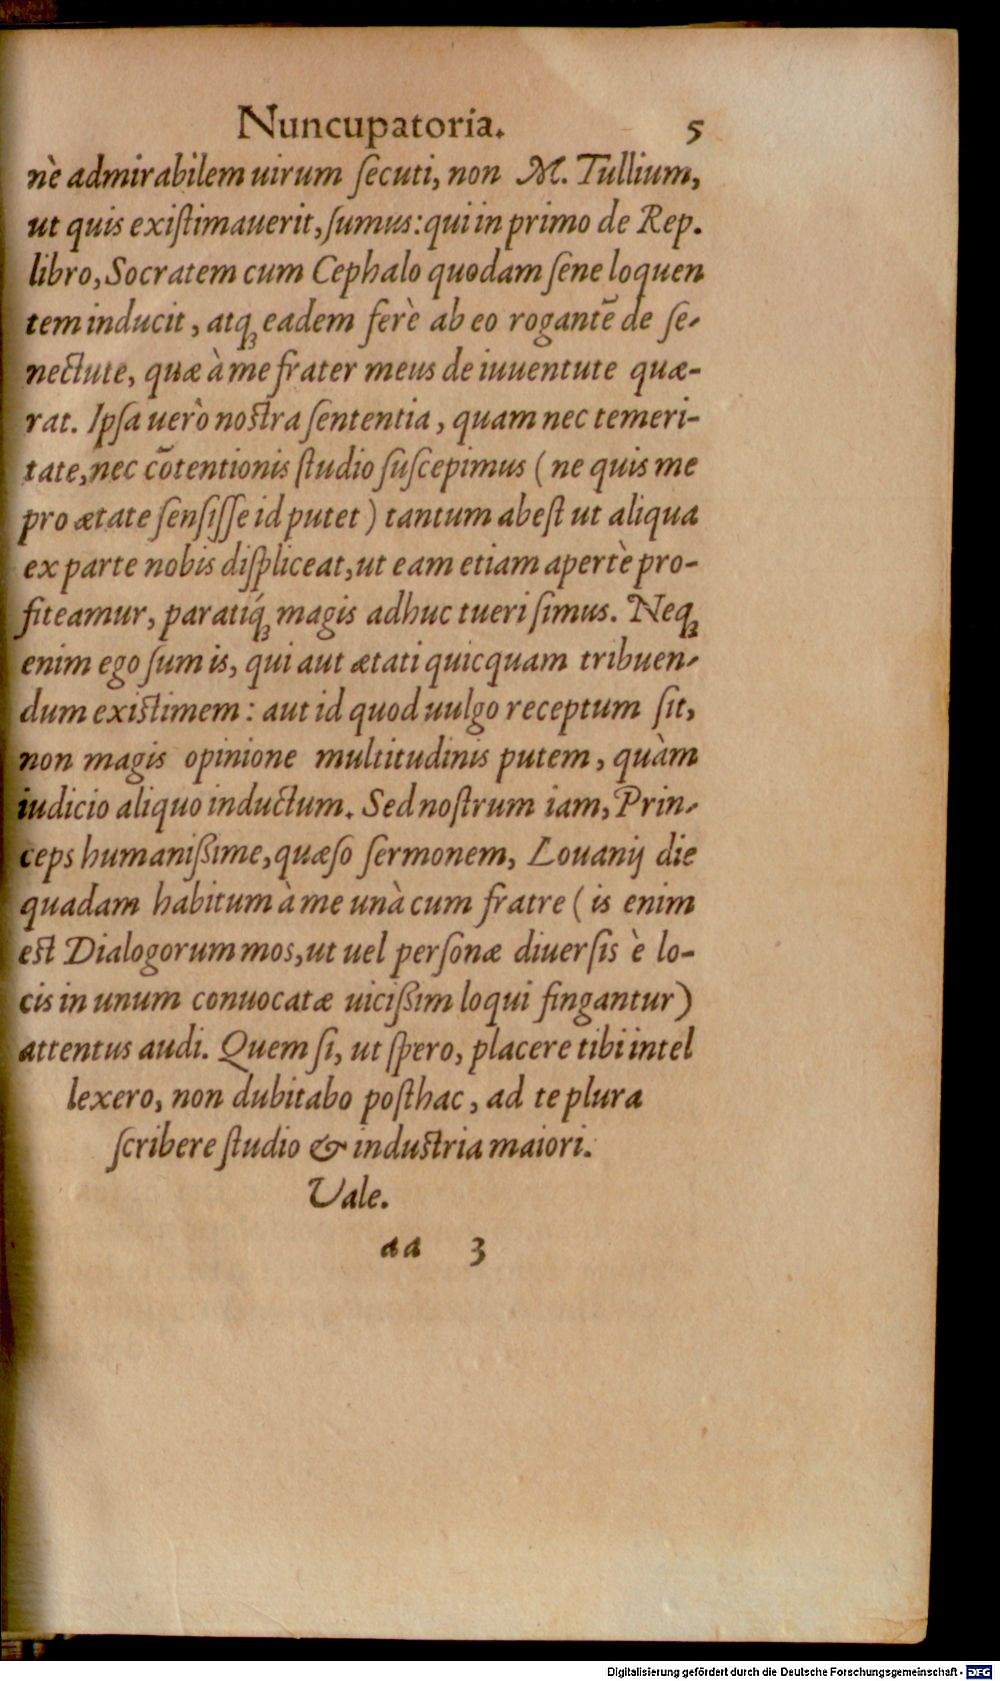 Nuncupatoria. 5
nè admirabilem uirum ſecuti, non M. Tullium,
ut quis exiſtimauerit, ſumus: qui in primo de Rep.
libro, Socratem cum Cephalo quodam ſene loquen
tem inducit, atqꝫ eadem ferè ab eo rogantē de ſe-
nectute, quæ à me frater meus de iuuentute quæ-
rat. Ipſa uerò noſtra ſententia, quam nec temeri-
tate, nec cōtentionis ſtudio ſuſcepimus (ne quis me
pro ætate ſenſiſſe id putet) tantum abeſt ut aliqua
ex parte nobis diſpliceat, ut eam etiam apertè pro-
fiteamur, paratiq́ꝫ magis adhuc tueri ſimus. Neqꝫ
enim ego ſum is, qui aut ætati quicquam tribuen-
dum exiſtimem: aut id quod uulgo receptum ſit,
non magis opinione multitudinis putem, quàm
iudicio aliquo inductum. Sed noſtrum iam, Prin-
ceps humanißime, quæſo ſermonem, Louanij die
quadam habitum à me unà cum fratre (is enim
eſt Dialogorum mos, ut uel perſonæ diuerſis è lo-
cis in unum conuocatæ uicißim loqui fingantur)
attentus audi. Quem ſi, ut ſpero, placere tibi intel
lexero, non dubitabo poſthac, ad te plura
ſcribere ſtudio & induſtria maiori.
Vale.
aa 3
Digitalisierung gefördert durch die Deutsche Forschungsgemeinschaft - DFG